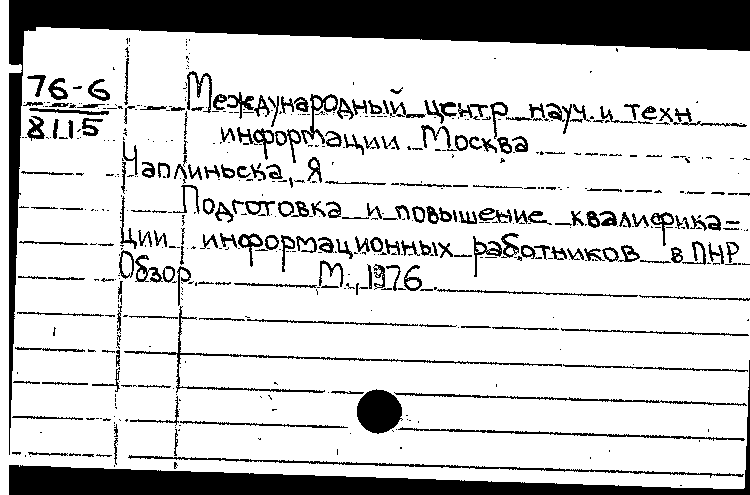 76-6
8115
Международный центр науч. и техн.
информации. Москва
Чаплиньска, Я
Подготовка и повышение квалифика-
ции информационных работников в ПНР
Обзор М., 1976.